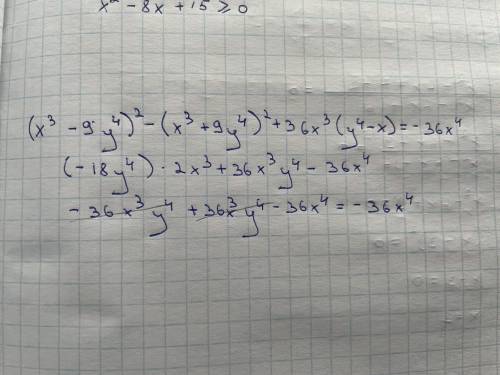 x² - 8x + 15 ≥ 0
(x³ - 9y⁴)² - (x³ + 9y⁴)² + 36x³(y⁴ - x) = -36x⁴
(-18y⁴) · 2x³ + 36x³y⁴ - 36x⁴
- 36x³y⁴ + 36x³y⁴ - 36x⁴ = -36x⁴